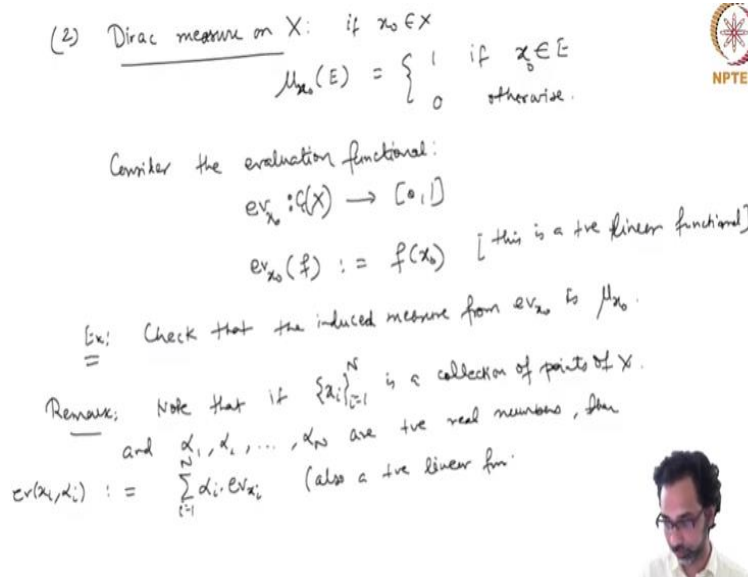 (2) Dirac measure on X: if x₀ ∈ X
μₓ₀(E) = { 1 if x₀ ∈ E
0 otherwise.
NPTEL
Consider the evaluation functional:
evₓ₀ : C(X) → [0,1]
evₓ₀(f) := f(x₀) [this is a +ve linear functional]
Ex: Check that the induced measure from evₓ₀ is μₓ₀.
Remark: Note that if {xᵢ}ᵢ₌₁ᴺ is a collection of points of X.
and α₁, α₂, ..., α_N are +ve real numbers, then
ev(xᵢ,αᵢ) := ∑ᵢ₌₁ᴺ αᵢ.evₓᵢ (also a +ve linear fun.